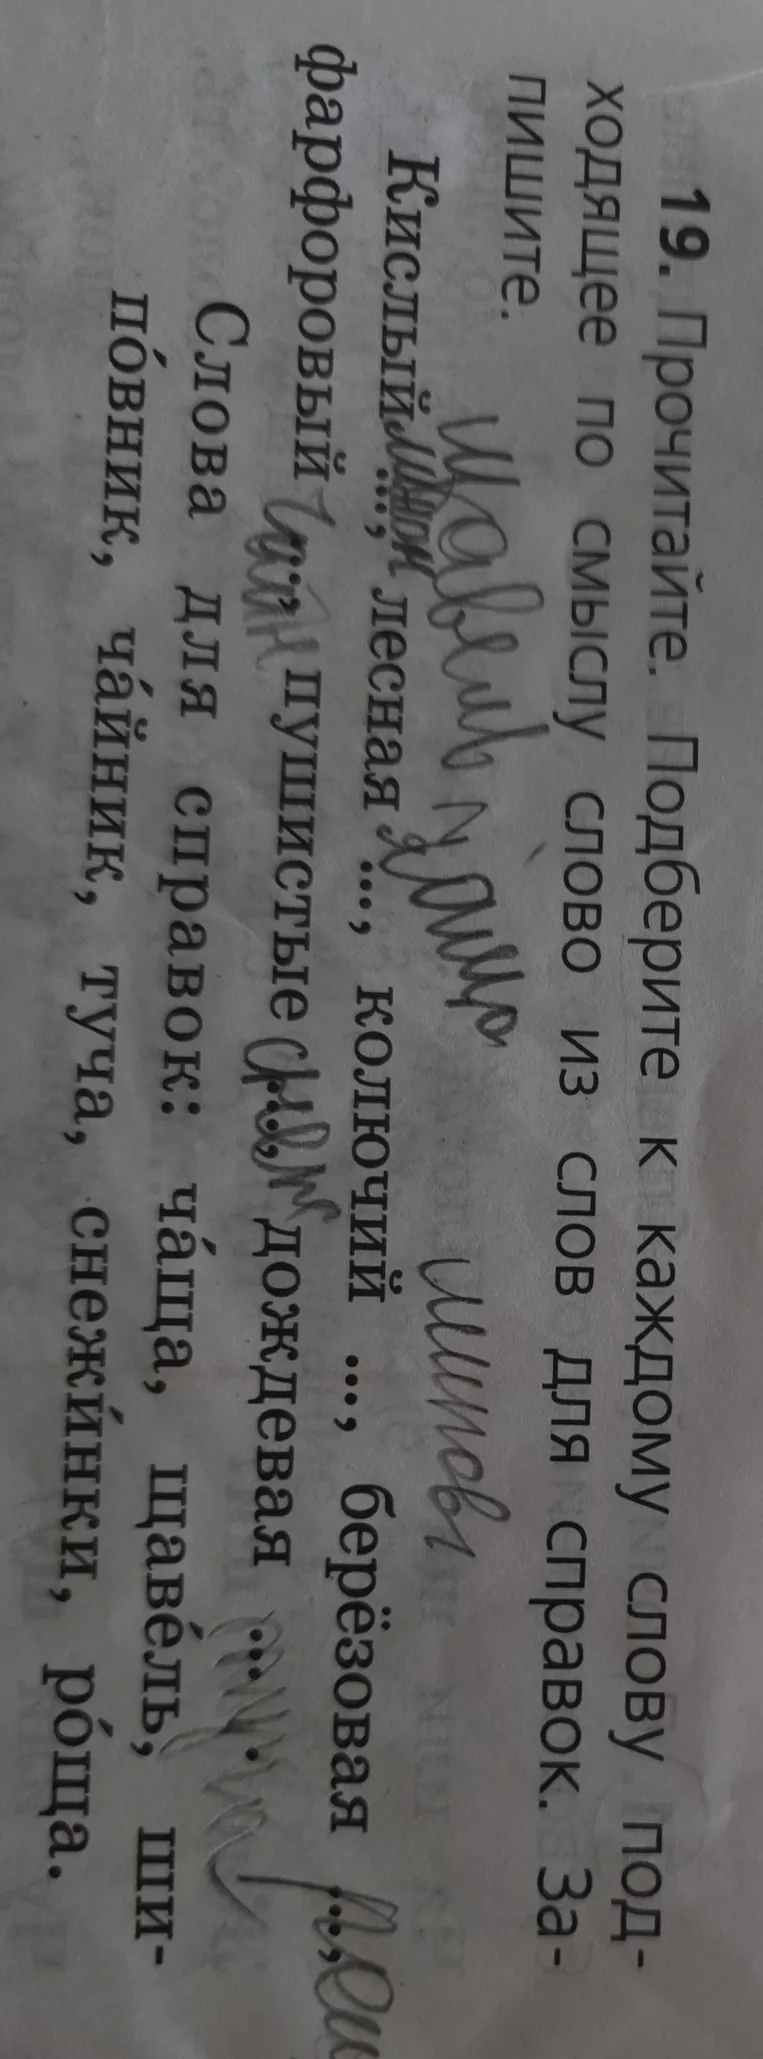 19. Прочитайте. Подберите к каждому слову под-
ходящее по смыслу слово из слов для справок. За-
пишите.
щавель чаща шипов
Кислый ..., лесная ..., колючий ..., берёзовая ...,
фарфоровый ..., пушистые ..., дождевая ... .
туча
Слова для справок: ча́ща, щаве́ль, ши-
по́вник, ча́йник, ту́ча, снежи́нки, ро́ща.